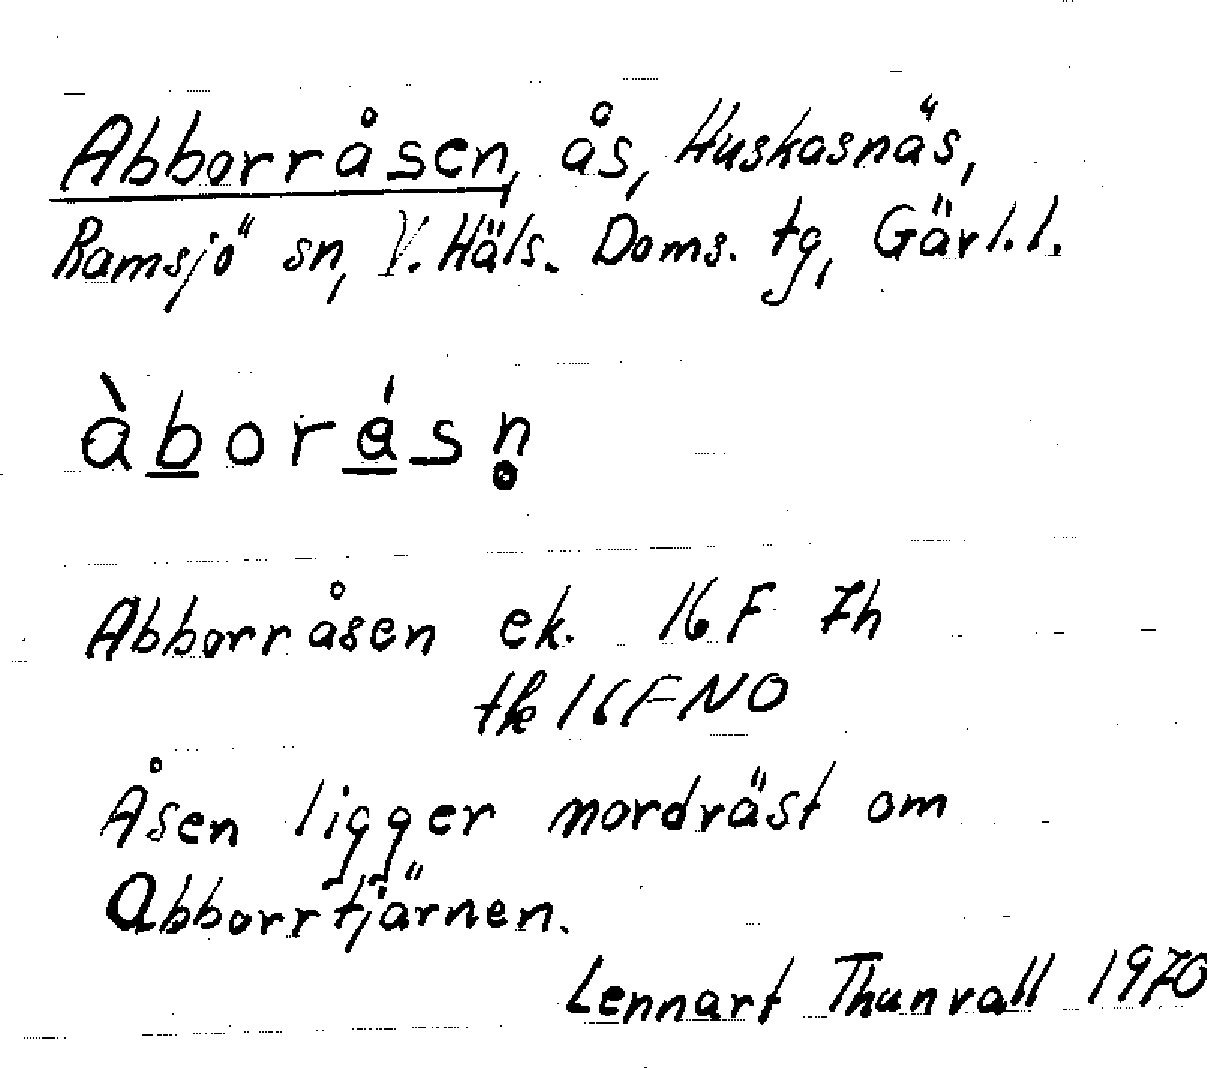 Abborråsen, ås, Huskasnäs,
Ramsjö sn, V. Häls. Doms. tg, Gävl. l.
àborásn̥
Abborråsen ek. 16F 7h
tk 16FNO
Åsen ligger nordväst om
Abborrtjärnen.
Lennart Thunvall 1970